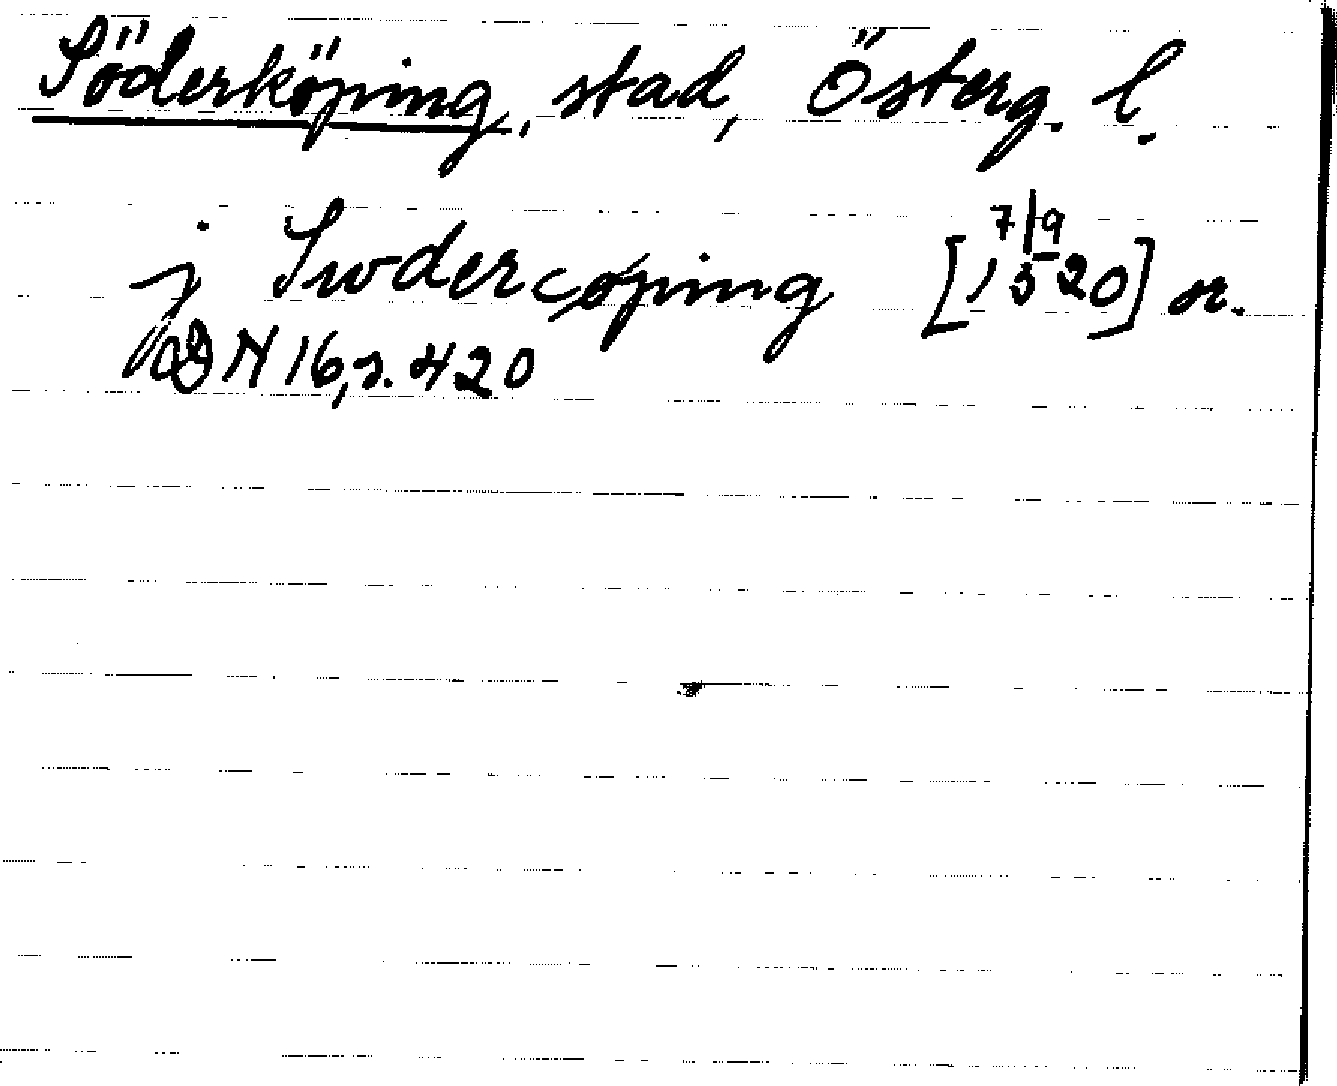 Söderköping, stad, Österg. l.
j Swdercøping [7/9 1520] or.
DN 16, s. 420